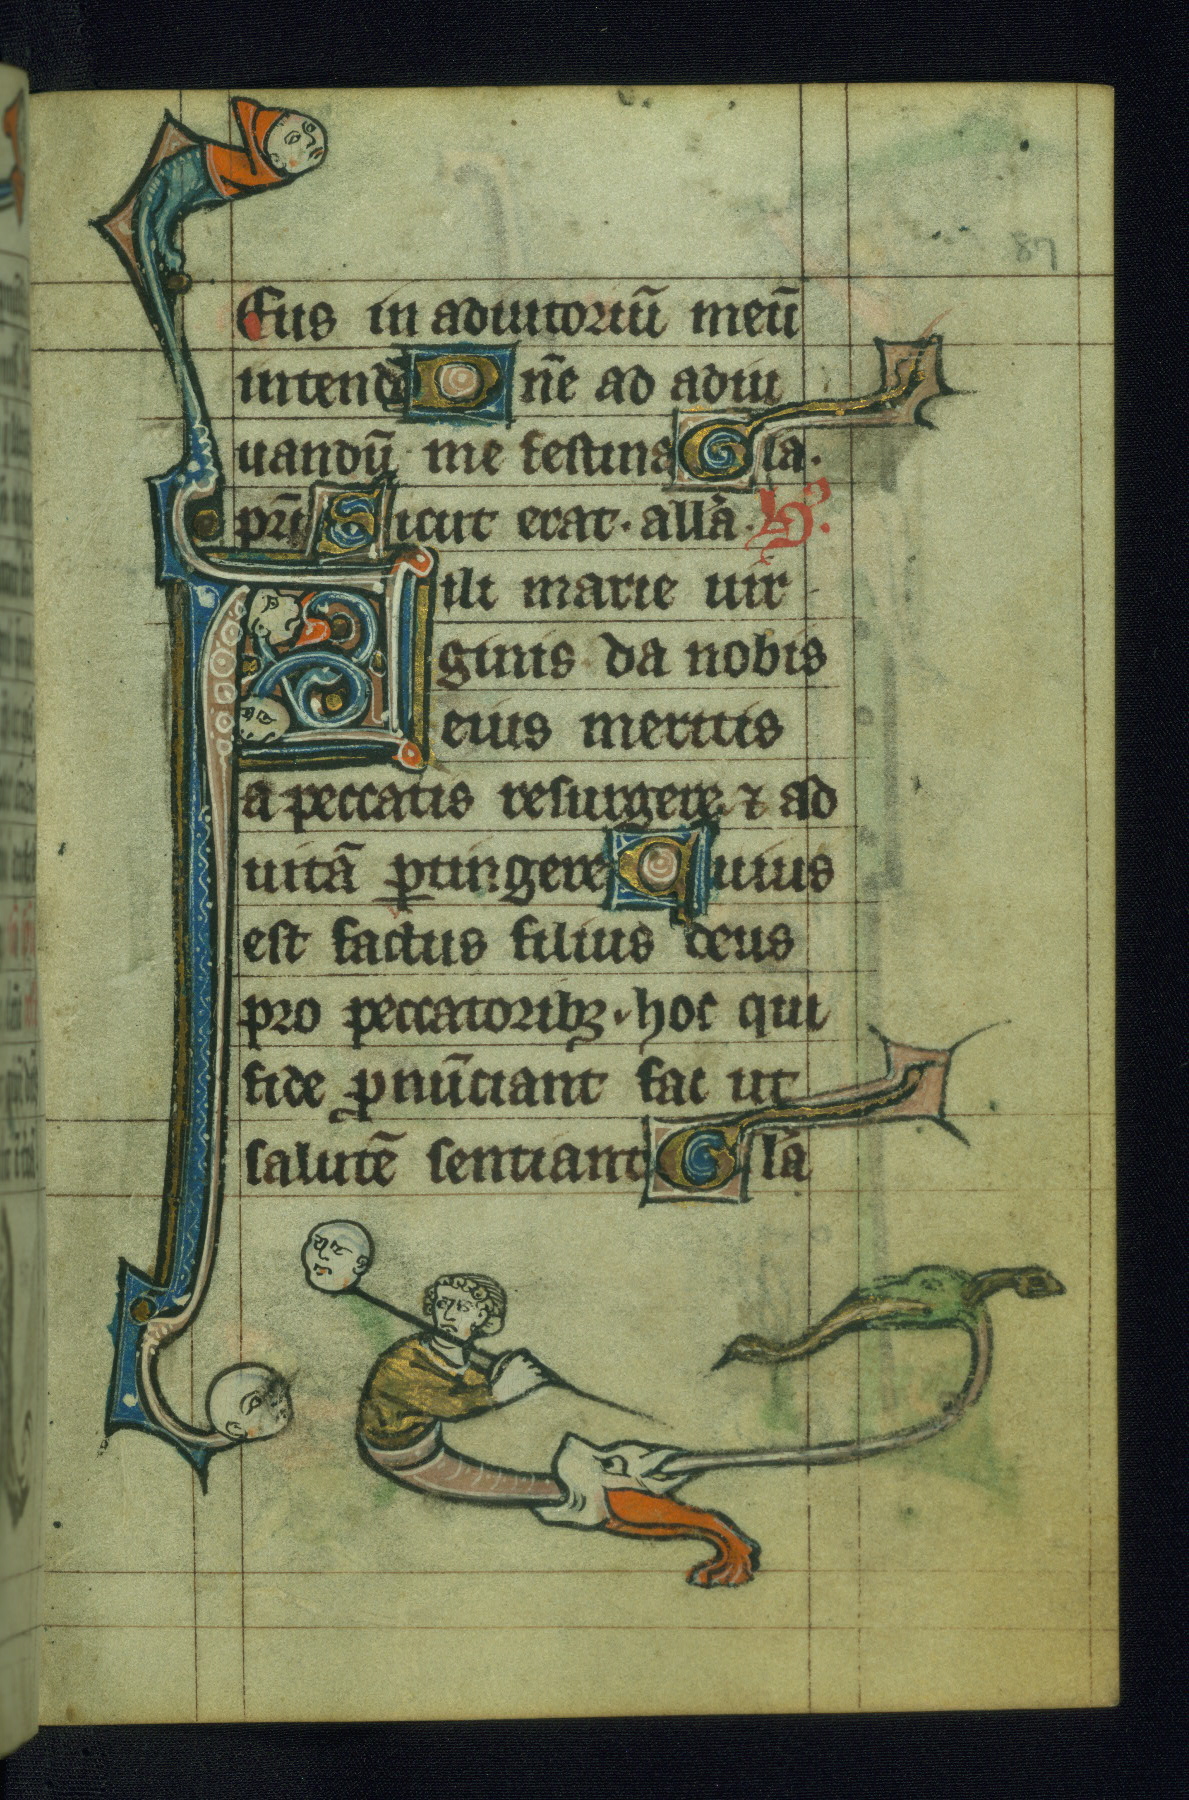 87
Eus in adiutoriū meū
intende Dn̄e ad adiu
uandū me festina Gla.
pr̄i Sicut erat. allā. hº.
Fili marie uir
ginis da nobis
eius meritis
a peccatis resurgere ⁊ ad
uitā ꝑtingere Quius
est factus filius deus
pro peccatoribꝫ. hoc qui
fide ꝓnūciant fac ut
salutē sentiant Glā